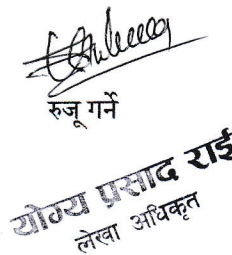 रुजू गर्ने
योग्य प्रसाद राई
लेखा अधिकृत